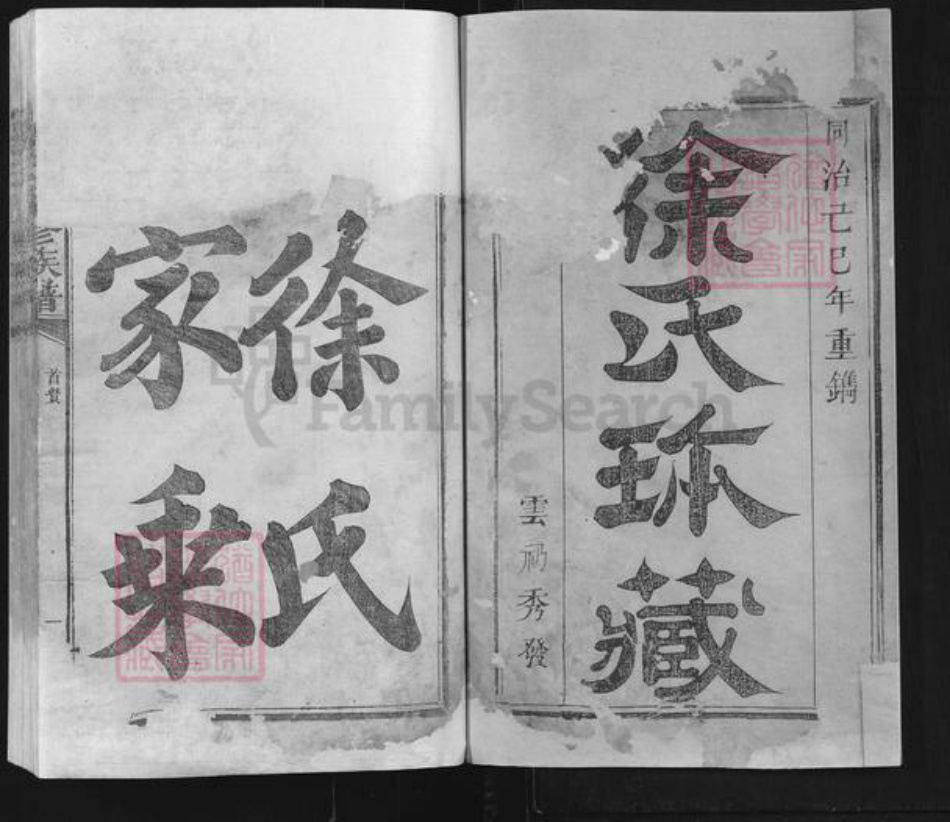 同治己巳年重鐫
徐氏珎藏
雲礽秀發
徐氏
家乘
族譜
首巻
一
FamilySearch